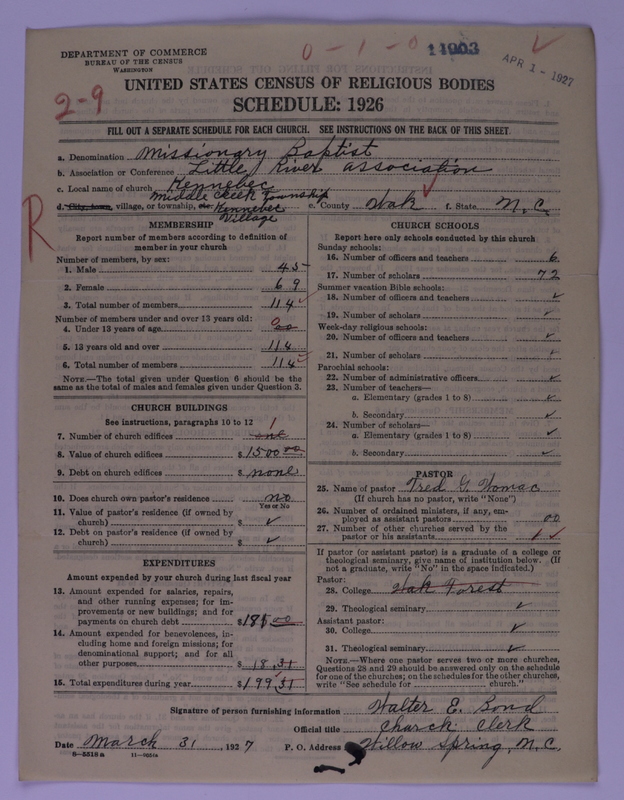 0-1-0 11903
APR 1 - 1927
DEPARTMENT OF COMMERCE
BUREAU OF THE CENSUS
WASHINGTON
UNITED STATES CENSUS OF RELIGIOUS BODIES
2-9
SCHEDULE: 1926
FILL OUT A SEPARATE SCHEDULE FOR EACH CHURCH. SEE INSTRUCTIONS ON THE BACK OF THIS SHEET.
a. Denomination Missionary Baptist
b. Association or Conference Little River association
c. Local name of church Kennebec
Middle Creek Township
d. City, town, village, or township, or Kennebec Village e. County Wak f. State N.C.
R
MEMBERSHIP
Report number of members according to definition of
member in your church
Number of members, by sex:
1. Male 45
2. Female 69
3. Total number of members 114
Number of members under and over 13 years old:
4. Under 13 years of age 0
5. 13 years old and over 114
6. Total number of members 114
NOTE.—The total given under Question 6 should be the
same as the total of males and females given under Question 3.
CHURCH BUILDINGS
See instructions, paragraphs 10 to 12
7. Number of church edifices one 1
8. Value of church edifices $ 1500 00
9. Debt on church edifices $ none
10. Does church own pastor's residence no
Yes or No
11. Value of pastor's residence (if owned by
church) $ ✓
12. Debt on pastor's residence (if owned by
church) $ ✓
EXPENDITURES
Amount expended by your church during last fiscal year
13. Amount expended for salaries, repairs,
and other running expenses; for im-
provements or new buildings; and for
payments on church debt $ 181 00
14. Amount expended for benevolences, in-
cluding home and foreign missions; for
denominational support; and for all
other purposes $ 18.31
15. Total expenditures during year $ 199.31
CHURCH SCHOOLS
Report here only schools conducted by this church
Sunday schools:
16. Number of officers and teachers 6
17. Number of scholars 72
Summer vacation Bible schools:
18. Number of officers and teachers ✓
19. Number of scholars ✓
Week-day religious schools:
20. Number of officers and teachers ✓
21. Number of scholars ✓
Parochial schools:
22. Number of administrative officers ✓
23. Number of teachers—
a. Elementary (grades 1 to 8) ✓
b. Secondary ✓
24. Number of scholars—
a. Elementary (grades 1 to 8) ✓
b. Secondary ✓
PASTOR
25. Name of pastor Fred G. Womac
(If church has no pastor, write "None")
26. Number of ordained ministers, if any, em-
ployed as assistant pastors 00
27. Number of other churches served by the
pastor or his assistants 1 ✓
If pastor (or assistant pastor) is a graduate of a college or
theological seminary, give name of institution below. (If
not a graduate, write "No" in the space indicated.)
Pastor:
28. College Wak Forest
29. Theological seminary ✓
Assistant pastor:
30. College ✓
31. Theological seminary ✓
NOTE.—Where one pastor serves two or more churches,
Questions 28 and 29 should be answered only on the schedule
for one of the churches; on the schedules for the other churches,
write "See schedule for church."
Signature of person furnishing information Walter E. Bond
Official title Church Clerk
Date March 31, 1927 P. O. Address Willow Spring, N.C.
8—5518a